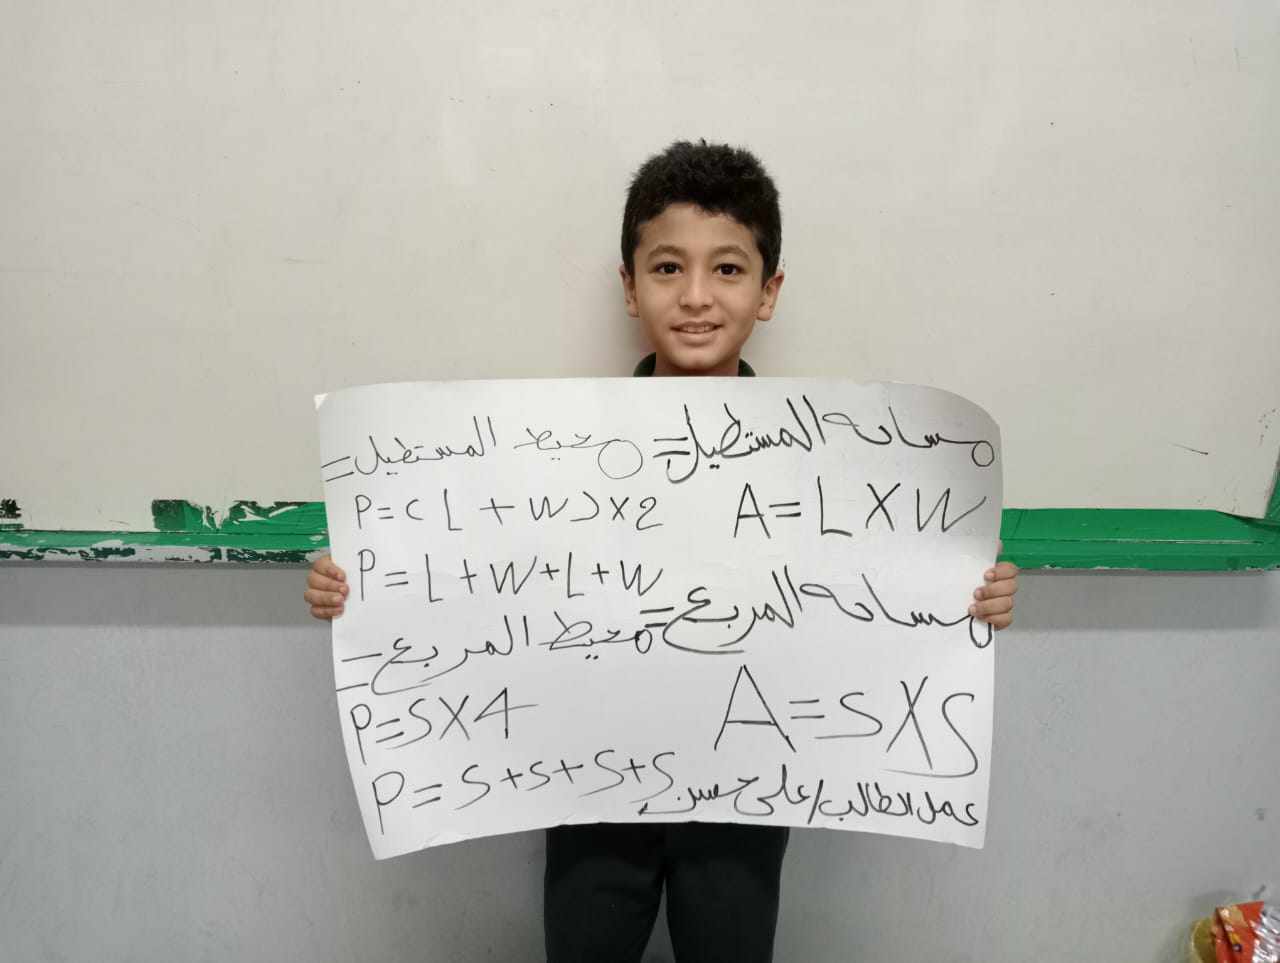 مساحه المستطيل=
A=L×W
محيط المستطيل=
P=(L+W)×2
P=L+W+L+W
مساحه المربع=
A=S×S
محيط المربع=
P=S×4
P=S+S+S+S
عمل الطالب/علي حسن